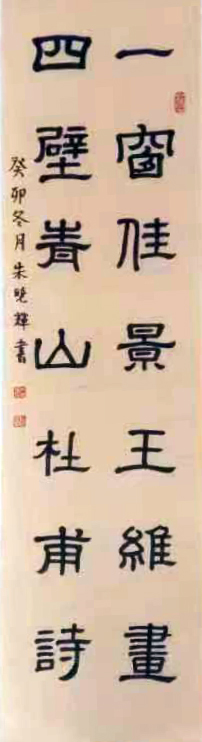 一窗佳景王維畫
四壁青山杜甫詩
癸卯冬月朱曉輝書